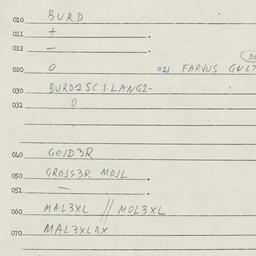 010 BURD
011 +
012 —
020 0 021 FARVUS GUL
030 BURD1SC1LANG2-
031 0
040 GOJD3R
050 GROJS3R MOJL
051 —
060 MAL3XL // MOL3XL
070 MAL3XLAX